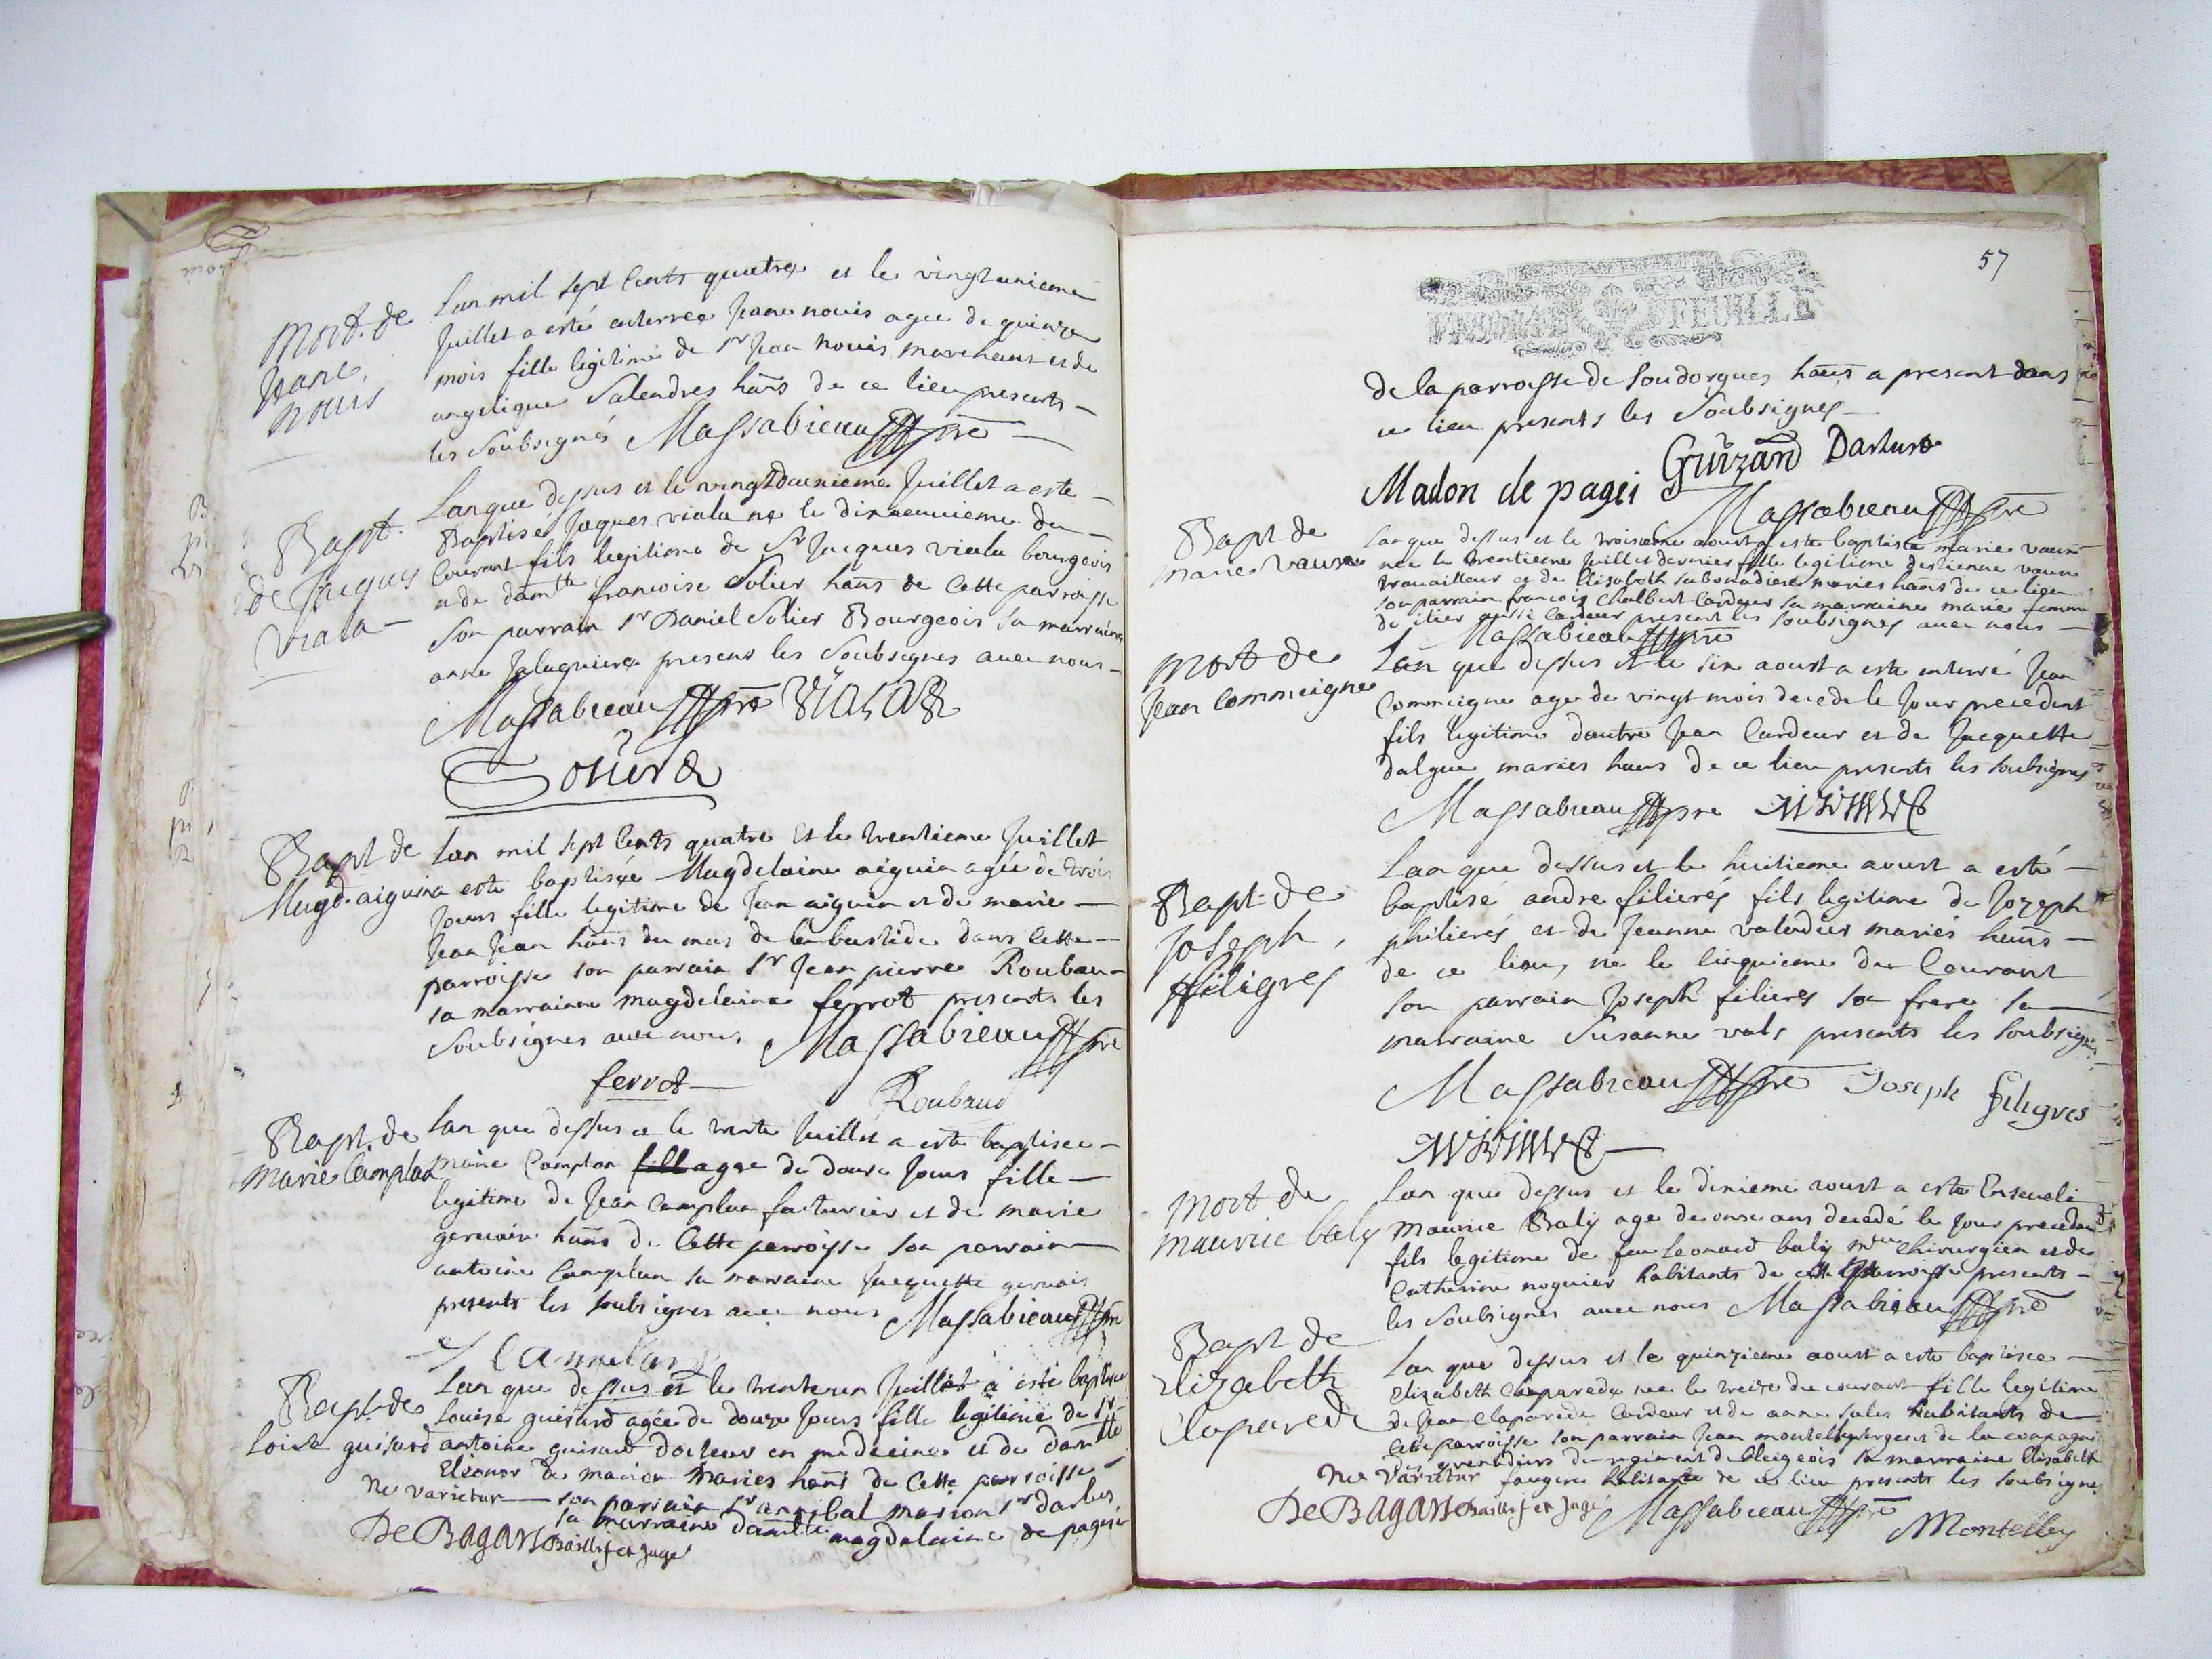 Mort. de
Jeane
nouis
Lan mil sept Cents quattre et le vingtunieme
Juillet a esté enterree Jeane nouis agee de quinze
mois fille legitime de Sr Jean Nouis marchant et de
angelique Salendres hans de ce lieu presents
les Soubsignés Massabieau pre
Bapt.
de Jacques
Viala
Lan que dessus et le vingtdeuxieme Juillet a este
Baptisé Jaques viala ne le dixneuvieme du
Courant fils legitime de Sr Jacques viala bourgeois
et de damlle francoise Solier hans de Cette parroisse
Son parrain Sr Daniel Solier Bourgeois Sa marraine
anne Jalaguiere presens les Soubsignes avec nous
Massabieau pre Viala
Solier
Bapt de
Magd. aiguina
Lan mil sept Cents quatre Et le trentieme Juillet
a este baptisée Magdelaine aiguin agée de trois
Jours fille legitime de Jean aiguin et de marie
Jean Jean hans du mas de la bastide dans Cette
parroisse son parrain Sr Jean pierre Roubau
sa marrainne magdelaine ferrot presents les
Soubsignes avec nous Massabieau pre
ferrot
Roubaud
Bapt. de
Marie Camplan
Lan que dessus et le trente Juillet a este baptisee
marie Camplan agee de douse Jours fille
legitime de Jean Camplan facturier et de marie
gervais hans de Cette parroisse son parrain
antoine Camplan sa marraine Jacquette gervais
presents les soubsignes avec nous Massabieau pre
Camplan
Bapt. de
Loise guisard
Lan que dessus et le trenteun Juillet a esté baptisee
Louise guisard agée de douze Jours fille legitime de Sr
antoine guisard docteur en medecine et de damlle
Eleonor de marion maries hans de Cette parroisse
Ne varietur son parrain Sr annibal marion Sr darlus
sa marraine damlle magdelaine de pages
De Bagars Baillif et Juge
57
FEUILLE
de la parroisse de Soudorgues hans a present dans
ce lieu presents les Soubsignes
Madon de pages Guizard Darlus
Massabieau pre
Bapt de
marie vaun
Lan que dessus et le troisieme aoust a este baptisée marie vaun
nee le trentieme Juillet dernier fille legitime destienne vaun
travailleur et de Elisabeth Sabonadiere maries hans de ce lieu
son parrain francois Chalbert Cardeur sa marraine marie femme
de itier aussi Cardeur present les Soubsignes avec nous
Massabieau pre
Mort de
Jean Commeigne
Lan que dessus et le six aoust a este enterré Jean
Commeigne age de vingt mois decede le Jour precedent
fils legitime dautre Jean Cardeur et de Jacquette
dalgue maries hans de ce lieu presents les soubsignes
Massabieau pre
Bapt. de
Joseph
filigres
Lan que dessus et le huitieme aoust a esté
baptisé andre filieres fils legitime de Jozeph
philieres et de Jeanne valadier mariés hans
de ce lieu, ne le Cinquieme du Courant
son parrain Joseph filieres son frere sa
marraine Susanne vals presents les soubsignes
Massabieau pre Joseph filigres
Mort de
maurice baly
Lan que dessus et le dixieme aoust a este Enseveli
Maurice Baly age de onse ans decedé le Jour precedent
fils legitime de feu Leonard baly mtre Chirurgien et de
Catherine noguier habitants de cette parroisse presents
les Soubsignes avec nous Massabieau pre
Bapt de
Elizabeth
Claparede
Lan que dessus et le quinzieme aoust a este baptisee
Elizabeth Claparede nee le treize du courant fille legitime
de Jean Claparede Cardeur et de anne sales habitants de
Cette parroisse son parrain Jean montelly sergent de la compagnie
des grenadiers du regiment de bleigeois sa marraine Elisabeth
Ne varietur faugere habitante de ce lieu presents les soubsignes
De Bagars Baillif et Juge Massabieau pre Montelly